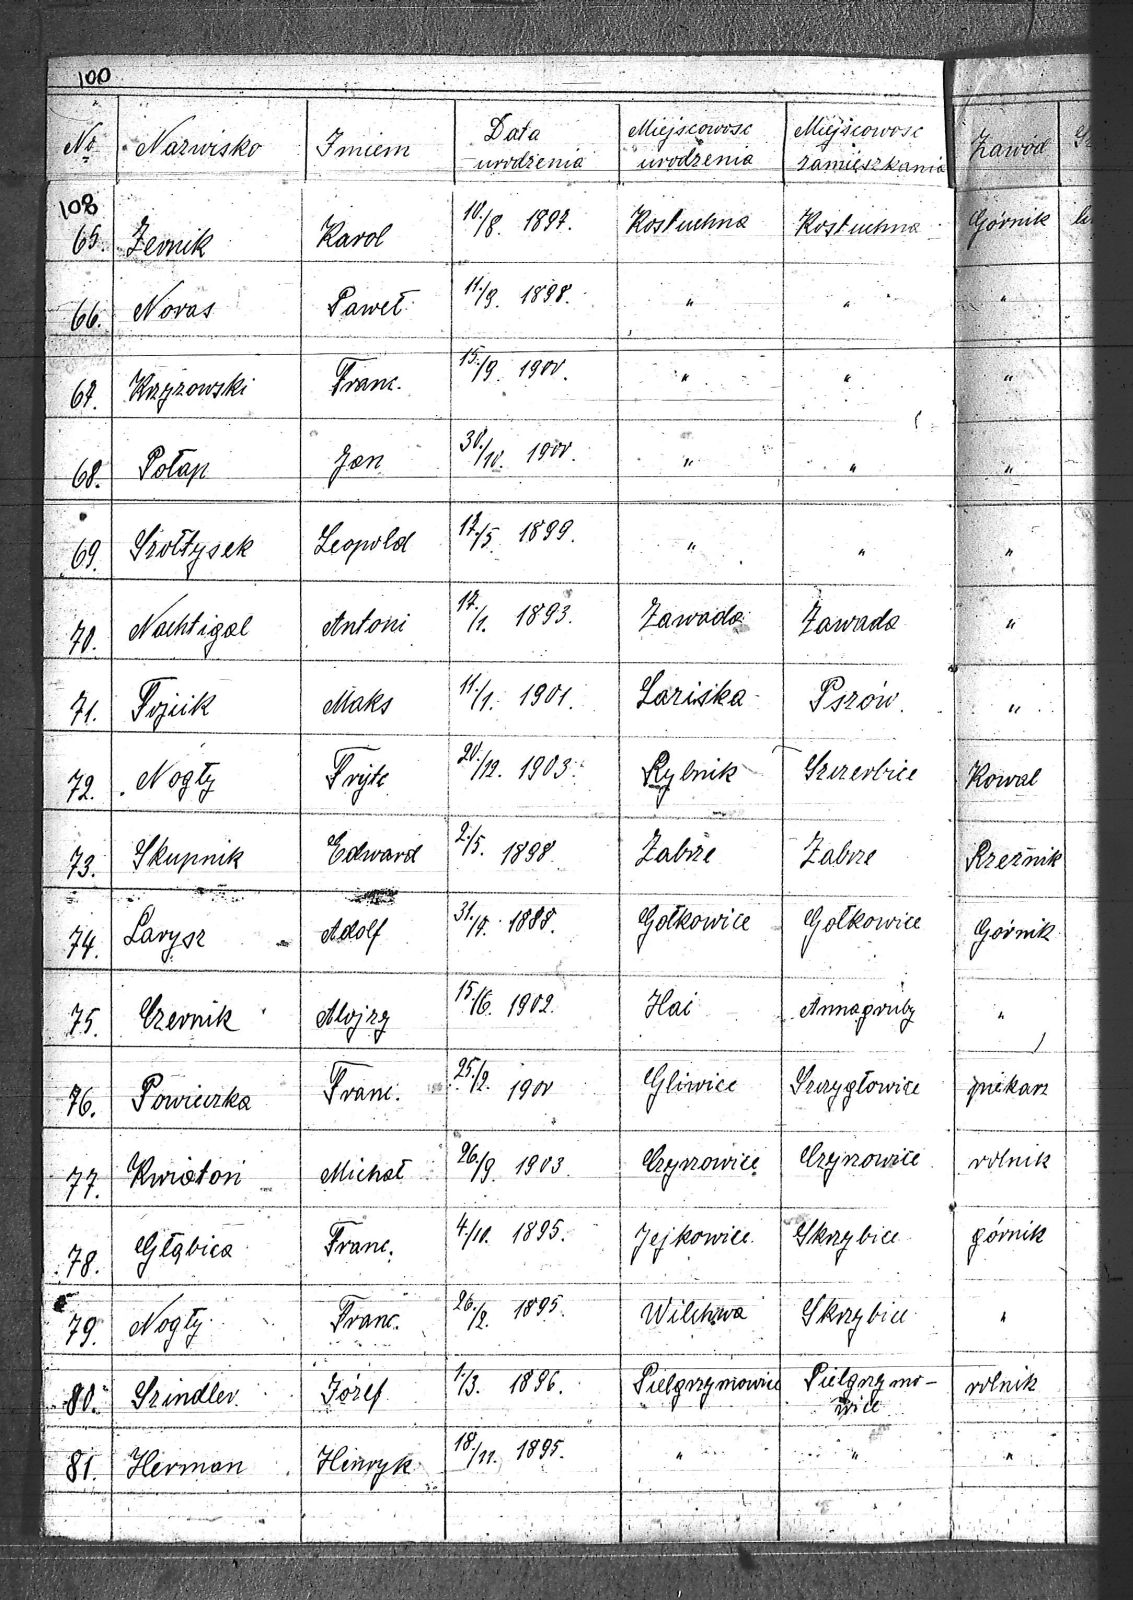 100
Nr Nazwisko Imiem Data urodzenia Miejscowosc urodzenia Miejscowosc zamieszkania Zawód
108
65. Żernik Karol 10./8. 1897. Kostuchna Kostuchna Górnik
66. Noras Paweł 11./9. 1898. " " "
67. Krzyzowski Franc. 15./9. 1900. " " "
68. Połap Jan 30./10. 1900. " " "
69. Szołtysek Leopold 17./5. 1899. " " "
70. Nachtigal Antoni 17./1. 1893. Zawada Zawada "
71. Fojcik Maks 11./1. 1901. Lariska Pszów. "
72. Nogły Fryc 20./12. 1903. Rybnik Szczerbice Kowal
73. Skupnik Edward 2./5. 1898 Zabrze Zabrze Rzeźnik
74. Larysz Adolf 1888. Gołkowice Gołkowice Górnik
75. Czernik Alojzy 15./6. 1902. Hai Annagruby "
76. Powieczka Franc. 25./2. 1900 Gliwice Szczygłowice piekarz
77. Kwiatoń Michał 26./9. 1903 Czyzowice Czyzowice rolnik
78. Głąbica Franc. 4./10. 1895. Jejkowice Skrzybice górnik
79. Nogły Franc. 26./2. 1895. Wilchwa Skrzybice "
80. Szindler Józef 1./3. 1896. Pielgrzymowice Pielgrzymo-
wice rolnik
81. Herman Hinryk 18./11. 1895. " " "